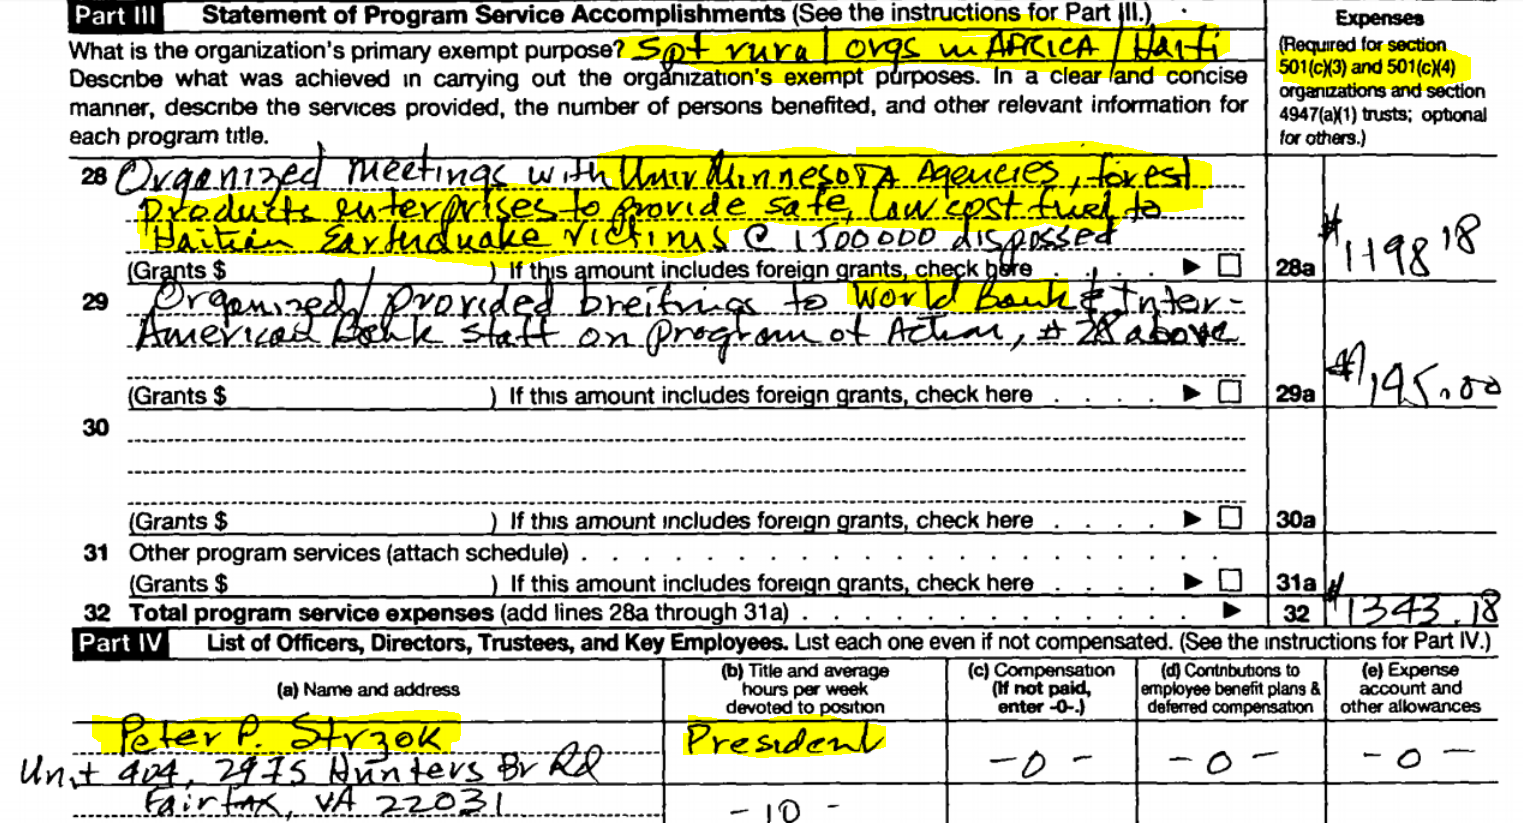 Part III Statement of Program Service Accomplishments (See the instructions for Part III.)
Expenses
(Required for section
501(c)(3) and 501(c)(4)
organizations and section
4947(a)(1) trusts; optional
for others.)
What is the organization's primary exempt purpose? Spt rural orgs in AFRICA / Haiti
Describe what was achieved in carrying out the organization's exempt purposes. In a clear and concise
manner, describe the services provided, the number of persons benefited, and other relevant information for
each program title.
28 Organized meetings with Univ Minnesota Agencies, forest
products enterprises to provide safe, low cost fuel to
Haitian Earthquake victims @ 1500000 dispossed
(Grants $ ) If this amount includes foreign grants, check here . . . . ▶ □ 28a $1198 18
29 Organized/provided breifings to World Bank & Inter-
American Bank staff on program of Action, # 28 above
(Grants $ ) If this amount includes foreign grants, check here . . . . ▶ □ 29a $145.00
30
(Grants $ ) If this amount includes foreign grants, check here . . . . ▶ □ 30a
31 Other program services (attach schedule) . . . . . . . . . . . . . . . . . . . .
(Grants $ ) If this amount includes foreign grants, check here . . . . ▶ □ 31a
32 Total program service expenses (add lines 28a through 31a) . . . . . . . . . . . . . . ▶ 32 $1343.18
Part IV List of Officers, Directors, Trustees, and Key Employees. List each one even if not compensated. (See the instructions for Part IV.)
(a) Name and address
(b) Title and average
hours per week
devoted to position
(c) Compensation
(If not paid,
enter -0-.)
(d) Contributions to
employee benefit plans &
deferred compensation
(e) Expense
account and
other allowances
Peter P. Strzok President -0- -0- -0-
Unit 404, 2975 Hunters Br Rd
Fairfax, VA 22031 -10-